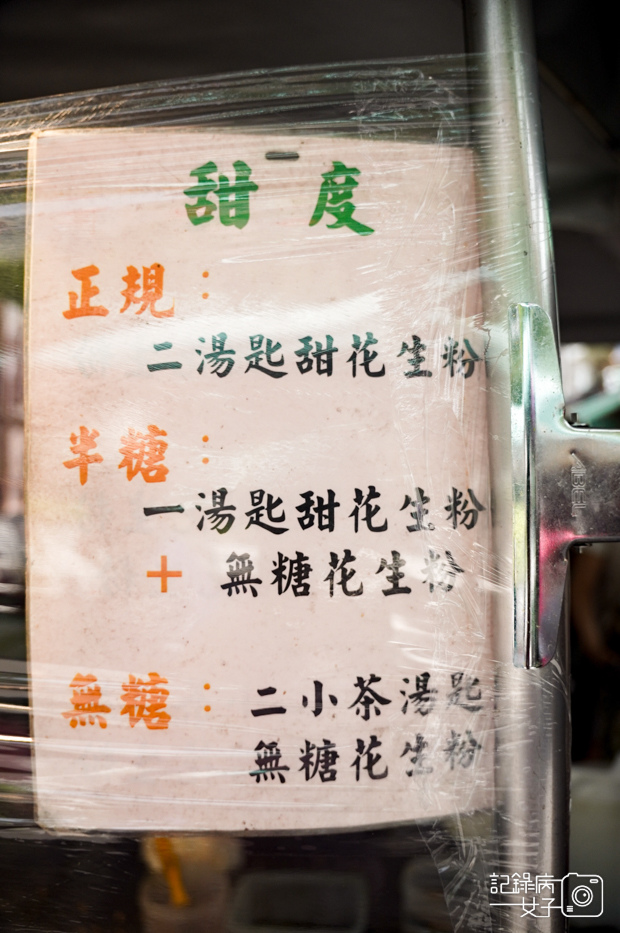 甜度
正規：
二湯匙甜花生粉
半糖：
一湯匙甜花生粉
+ 無糖花生粉
無糖：二小茶湯匙
無糖花生粉
記錄病
女子